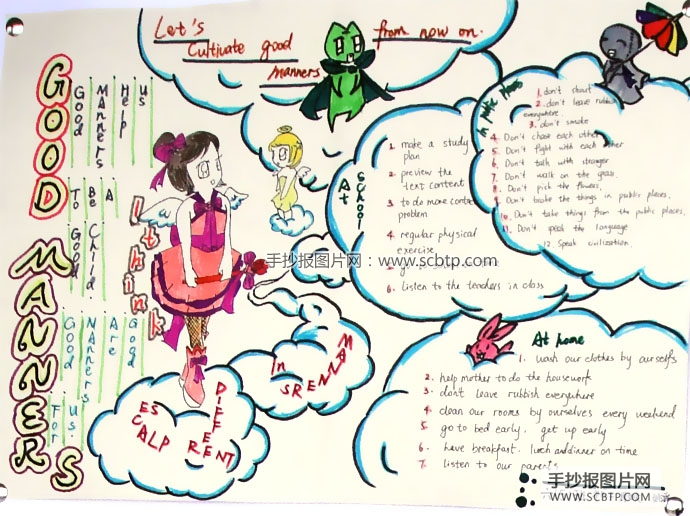 Let's
Cultivate good
manners
from now on.
GOOD MANNERS
Good MANNERS Help Us
To Be A Good Child.
Good MANNERS Are Good For Us.
I think
In MANNERS
DIFFERENT
PLACES
At school
1. make a study
plan
2. preview the
text content
3. to do more
problem
4. regular physical
exercise
5.
6. listen to the teachers in class
In public places
1. don't shout
2. don't leave rubbish
everywhere.
3. don't smoke
4. Don't chase each other
5. Don't fight with each other
6. Don't talk with stranger
7. Don't walk on the grass.
8. Don't pick the flowers.
9. Don't broke the things in public places.
10. Don't take things from the public places.
11. Don't speak the language
12. Speak civilization.
At home
1. wash our clothes by ourselfs
2. help mother to do the housework
3. don't leave rubbish everywhere
4. clean our rooms by ourselves every weekend
5. go to bed early. get up early
6. have breakfast. lunch and dinner on time
7. listen to our parents
手抄报图片网：www.scbtp.com
手抄报图片网
WWW.SCBTP.COM